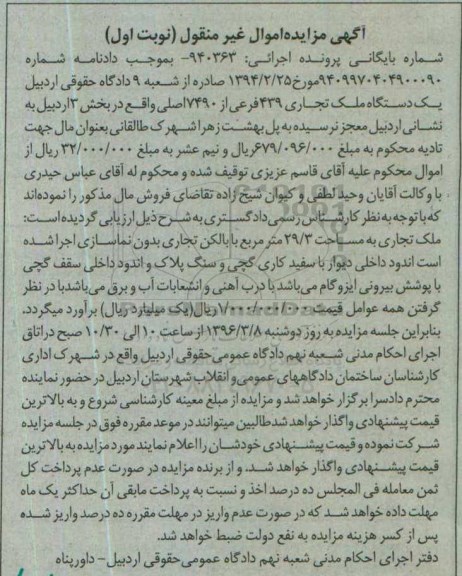 آگهی مزایده‌اموال غیر منقول (نوبت اول)
شماره بایگانی پرونده اجرائی: ۹۴۰۳۶۳- بموجب دادنامه شماره
۹۴۰۹۹۷۰۴۰۴۹۰۰۰۹۰مورخ۱۳۹۴/۲/۲۵ صادره از شعبه ۹ دادگاه حقوقی اردبیل
یک دستگاه ملک تجاری ۴۳۹فرعی از ۷۴۹۰اصلی واقع در بخش ۳اردبیل به
نشانی اردبیل معجز نرسیده به پل بهشت زهرا شهرک طالقانی بعنوان مال جهت
تادیه محکوم به مبلغ ۶۷۹/۰۹۶/۰۰۰ریال و نیم عشر به مبلغ ۳۲/۰۰۰/۰۰۰ ریال از
اموال محکوم علیه آقای قاسم عزیزی توقیف شده و محکوم له آقای عباس حیدری
با وکالت آقایان وحید لطفی و کیوان شیخ زاده تقاضای فروش مال مذکور را نموده‌اند
که با توجه به نظر کارشناس رسمی دادگستری به شرح ذیل ارزیابی گردیده است:
ملک تجاری به مساحت ۲۹/۳ متر مربع با بالکن تجاری بدون نماسازی اجرا شده
است اندود داخلی دیوار با سفید کاری گچی و سنگ پلاک و اندود داخلی سقف گچی
با پوشش بیرونی ایزوگام می‌باشد با درب آهنی و انشعابات آب و برق می‌باشد با در نظر
گرفتن همه عوامل قیمت ۱/۰۰۰/۰۰۰/۰۰۰ریال(یک میلیارد ریال) برآورد میگردد.
بنابراین جلسه مزایده به روز دوشنبه ۱۳۹۶/۳/۸ از ساعت ۱۰ الی ۱۰/۳۰ صبح در اتاق
اجرای احکام مدنی شعبه نهم دادگاه عمومی حقوقی اردبیل واقع در شهرک اداری
کارشناسان ساختمان دادگاههای عمومی و انقلاب شهرستان اردبیل در حضور نماینده
محترم دادسرا برگزار خواهد شد و مزایده از مبلغ معینه کارشناسی شروع و به بالاترین
قیمت پیشنهادی واگذار خواهد شد طالبین میتوانند در موعد مقرره فوق در جلسه مزایده
شرکت نموده و قیمت پیشنهادی خودشان را اعلام نمایند مورد مزایده به بالاترین
قیمت پیشنهادی واگذار خواهد شد. و از برنده مزایده در صورت عدم پرداخت کل
ثمن معامله فی المجلس ده درصد اخذ و نسبت به پرداخت مابقی آن حداکثر یک ماه
مهلت داده خواهد شد که در صورت عدم واریز در مهلت مقرره ده درصد واریز شده
پس از کسر هزینه مزایده به نفع دولت ضبط خواهد شد.
دفتر اجرای احکام مدنی شعبه نهم دادگاه عمومی حقوقی اردبیل- داورپناه